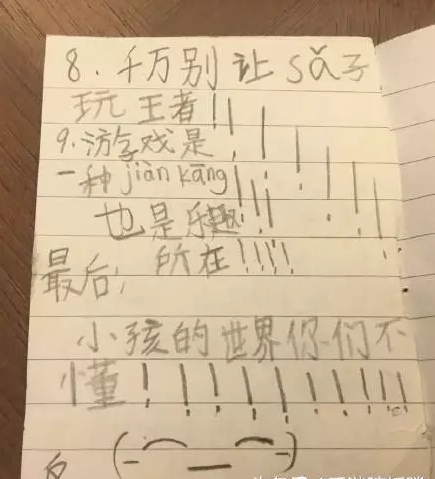 8. 千万别让sǎ子
玩王者!!
9. 游戏是
一种jiàn kāng
也是乐趣
所在!!!!!
最后,
小孩的世界你们不
懂!!!!!!!!!!!